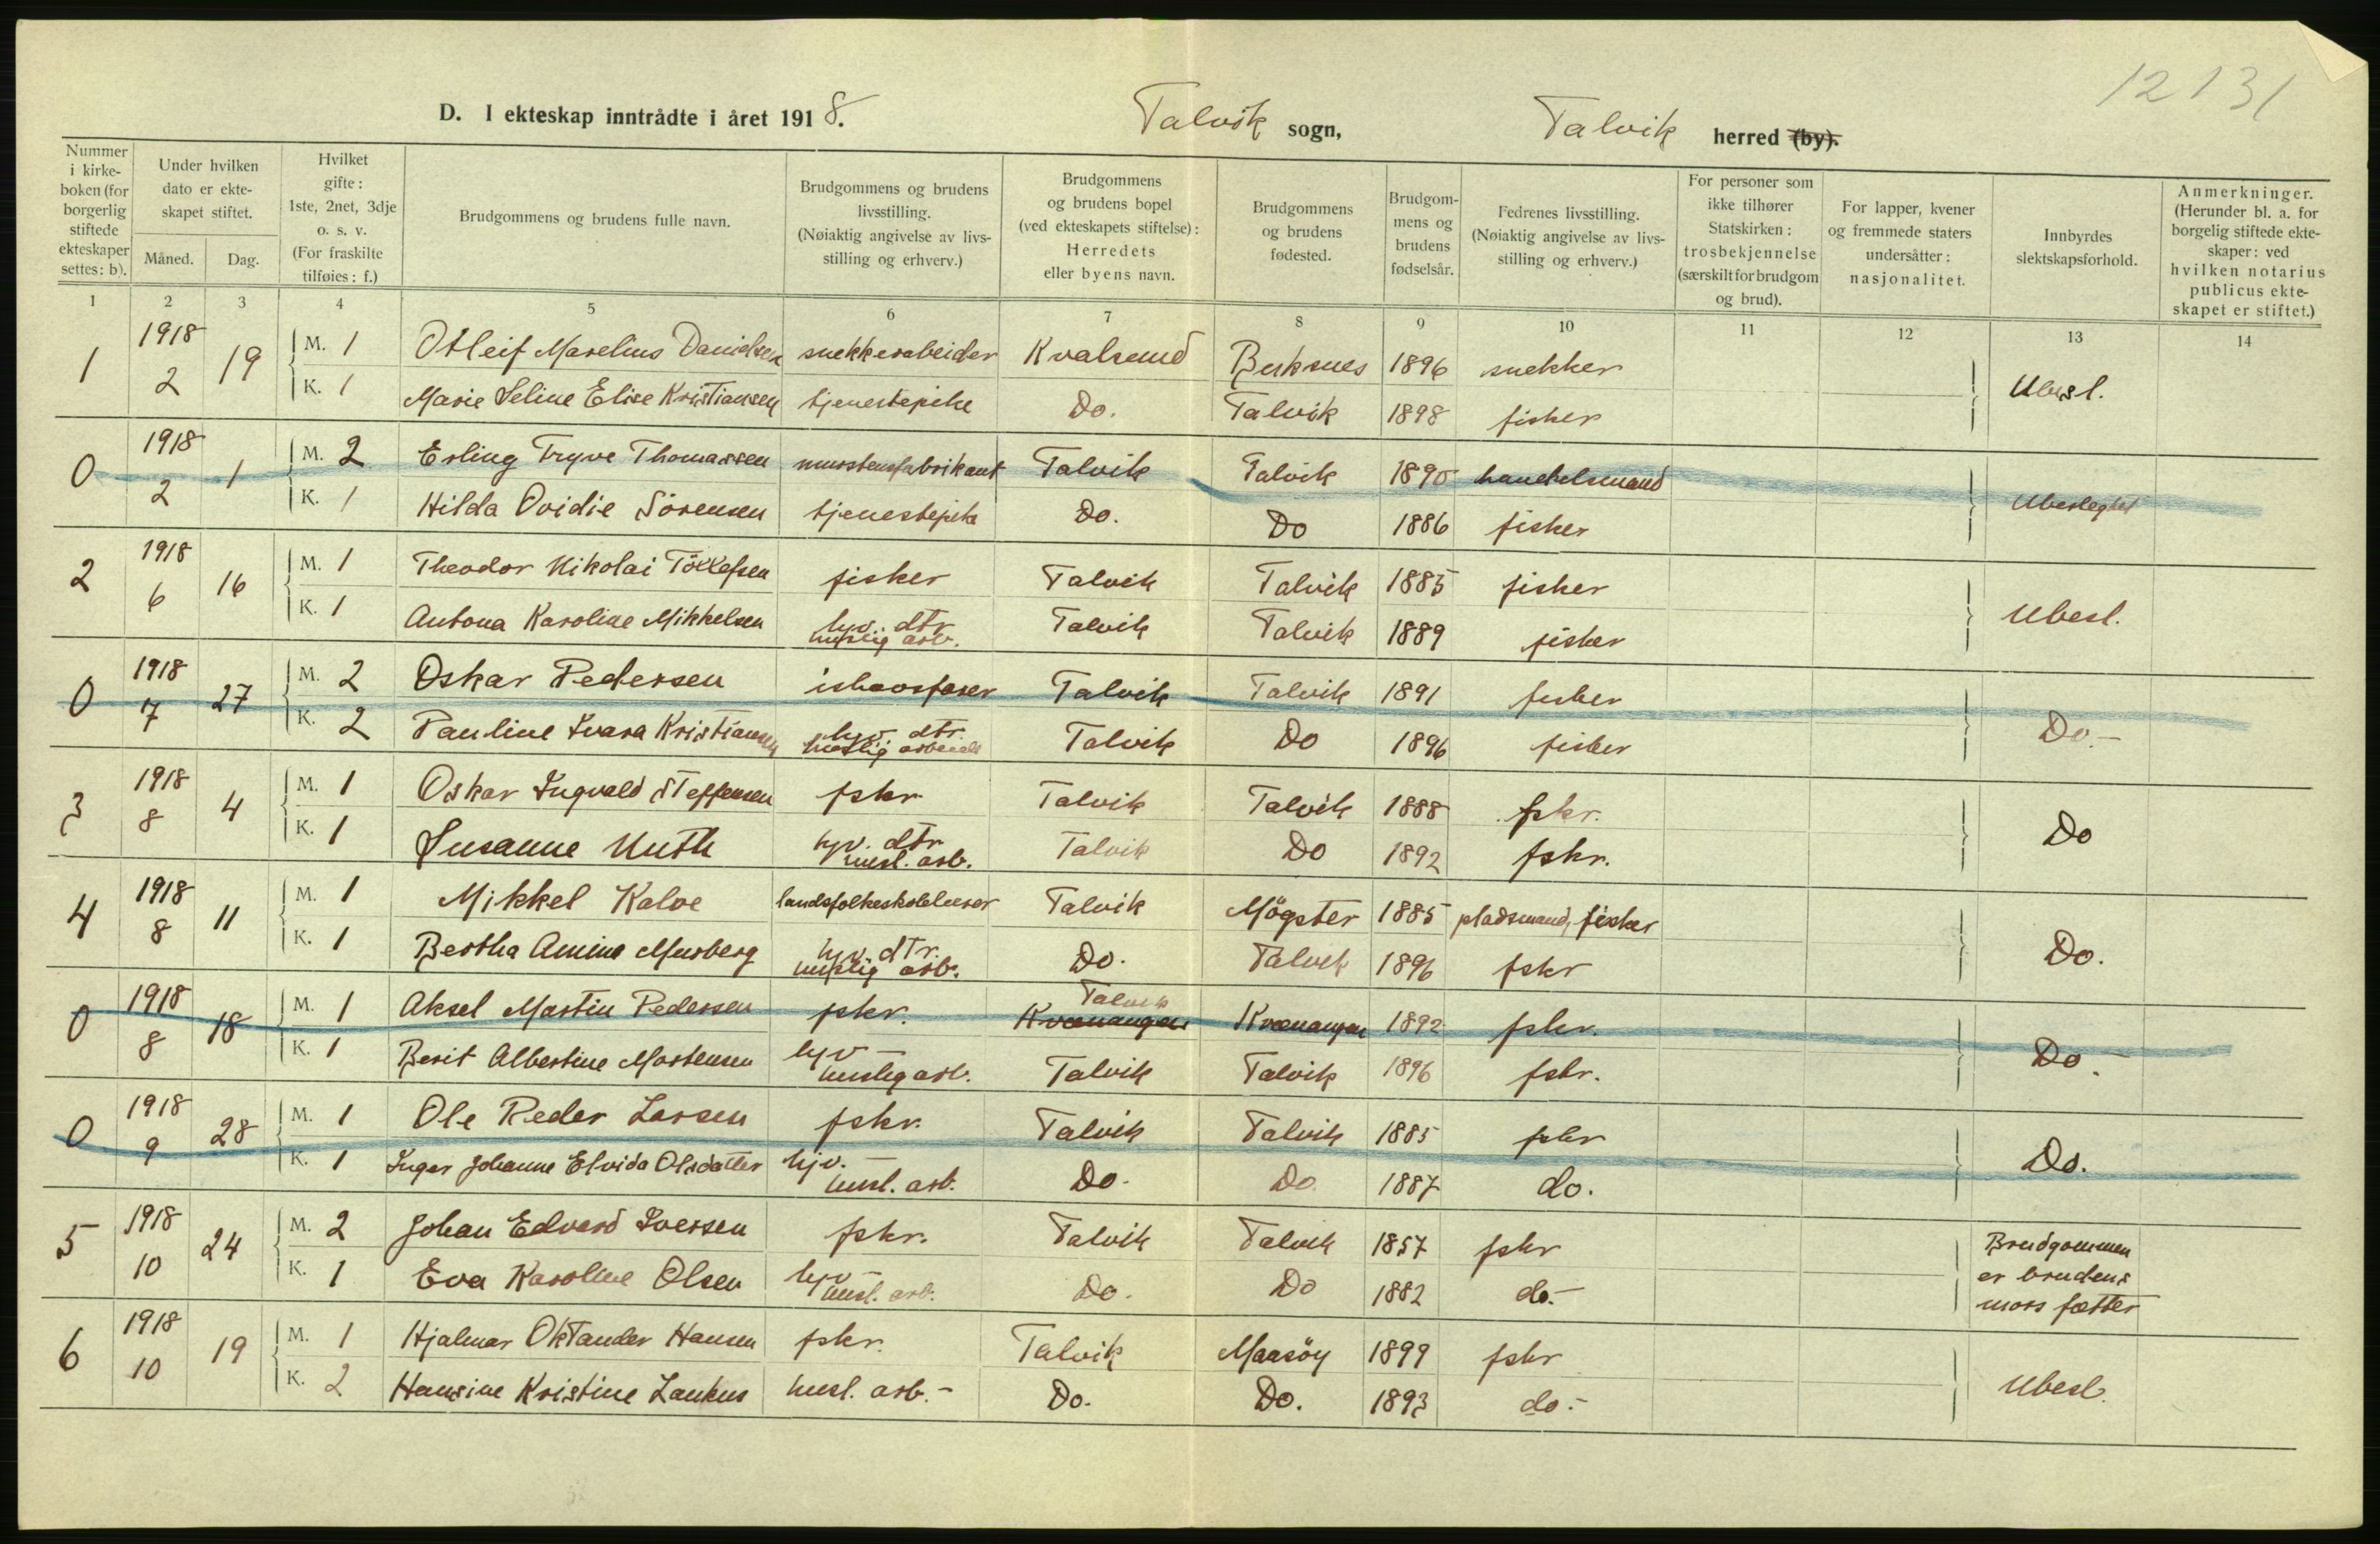 12131
D. I ekteskap inntrådte i året 1918. Talvik sogn, Talvik herred (by).
Nummer i kirke-boken (for borgerlig stiftede ekteskaper settes: b). Under hvilken dato er ekte-skapet stiftet. Måned. Dag. Hvilket gifte: 1ste, 2net, 3dje o. s. v. (For fraskilte tilføies: f.) Brudgommens og brudens fulle navn. Brudgommens og brudens livsstilling. (Nøiaktig angivelse av livs-stilling og erhverv.) Brudgommens og brudens bopel (ved ekteskapets stiftelse): Herredets eller byens navn. Brudgommens og brudens fødested. Brudgom-mens og brudens fødselsår. Fedrenes livsstilling. (Nøiaktig angivelse av livs-stilling og erhverv.) For personer som ikke tilhører Statskirken: trosbekjennelse (særskilt for brudgom og brud). For lapper, kvener og fremmede staters undersåtter: nasjonalitet. Innbyrdes slektskapsforhold. Anmerkninger. (Herunder bl. a. for borgelig stiftede ekte-skaper: ved hvilken notarius publicus ekte-skapet er stiftet.)
1 2 3 4 5 6 7 8 9 10 11 12 13 14
1 1918 2 19 M. 1 Otleif Marelius Danielsen snekkerarbeider Kvalsund Buksnes 1896 snekker Ubesl.
K. 1 Marie Seline Elise Kristiansen tjenestepike Do. Talvik 1898 fisker
0 1918 2 1 M. 2 Erling Tryve Thomassen murstensfabrikant Talvik Talvik 1890 handelsmand Ubeslegtet
K. 1 Hilda Ovidie Sörensen tjenestepike Do. Do 1886 fisker
2 1918 6 16 M. 1 Theodor Nikolai Töllefsen fisker Talvik Talvik 1885 fisker Ubesl.
K. 1 Antona Karoline Mikkelsen hjv. dtr. huslig arb. Talvik Talvik 1889 fisker
0 1918 7 27 M. 2 Oskar Pedersen ishavsfarer Talvik Talvik 1891 fisker Do.-
K. 2 Pauline Ivara Kristiansen hjv. dtr. huslig Talvik Do 1896 fisker
3 1918 8 4 M. 1 Oskar Ingvald Steffensen fskr Talvik Talvik 1888 fskr. Do
K. 1 Susanne Muth hjv. dtr husl. arb. Talvik Do 1892 fskr.
4 1918 8 11 M. 1 Mikkel Kalve landsfolkeskolelærer Talvik Mögster 1885 pladsmand, fisker Do.
K. 1 Bertha Amina Murberg hjv. dtr. huslig arb. Do. Talvik 1896 fskr
0 1918 8 18 M. 1 Aksel Martin Pedersen fskr. Talvik Kvænangen Kvænangen 1892 fskr. Do.-
K. 1 Berit Albertine Mortensen hjv - huslig arb. Talvik Talvik 1896 fskr.
0 1918 9 28 M. 1 Ole Peder Larsen fskr. Talvik Talvik 1885 fskr Do.
K. 1 Inger Johanne Elvida Olsdatter hjv. - husl. arb. Do. Do. 1887 do.
5 1918 10 24 M. 2 Johan Edvard Iversen fskr. Talvik Talvik 1857 fskr Brudgommen er brudens mors fætter
K. 1 Eva Karoline Olsen hjv - husl. arb. Do. Do 1882 do.-
6 1918 10 19 M. 1 Hjalmar Oktander Hansen fskr. Talvik Maasöy 1899 fskr Ubesl.
K. 2 Hansine Kristine Lankus husl. arb.- Do. Do. 1893 do.-